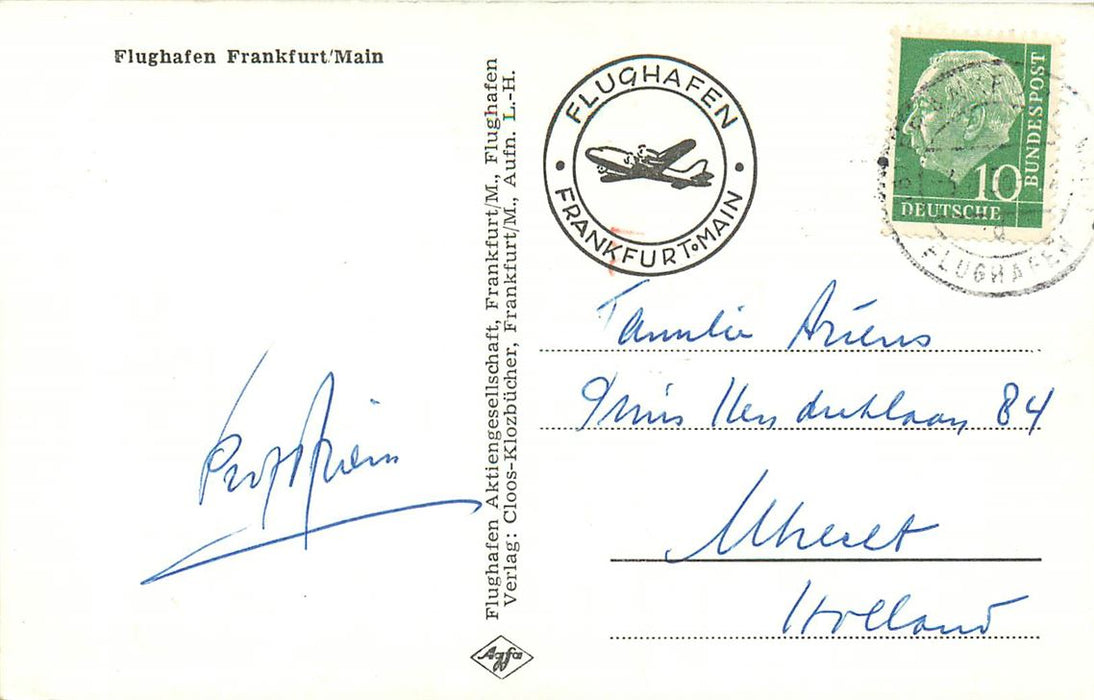 Flughafen Frankfurt/Main
Flughafen Aktiengesellschaft, Frankfurt/M., Flughafen
Verlag: Cloos-Klozbücher, Frankfurt/M., Aufn. L.-H.
Agfa
FLUGHAFEN
FRANKFURT MAIN
10
DEUTSCHE
BUNDESPOST
FLUGHAFEN
Familie Ariens
Prins Hendriklaan 84
Utrecht
Holland